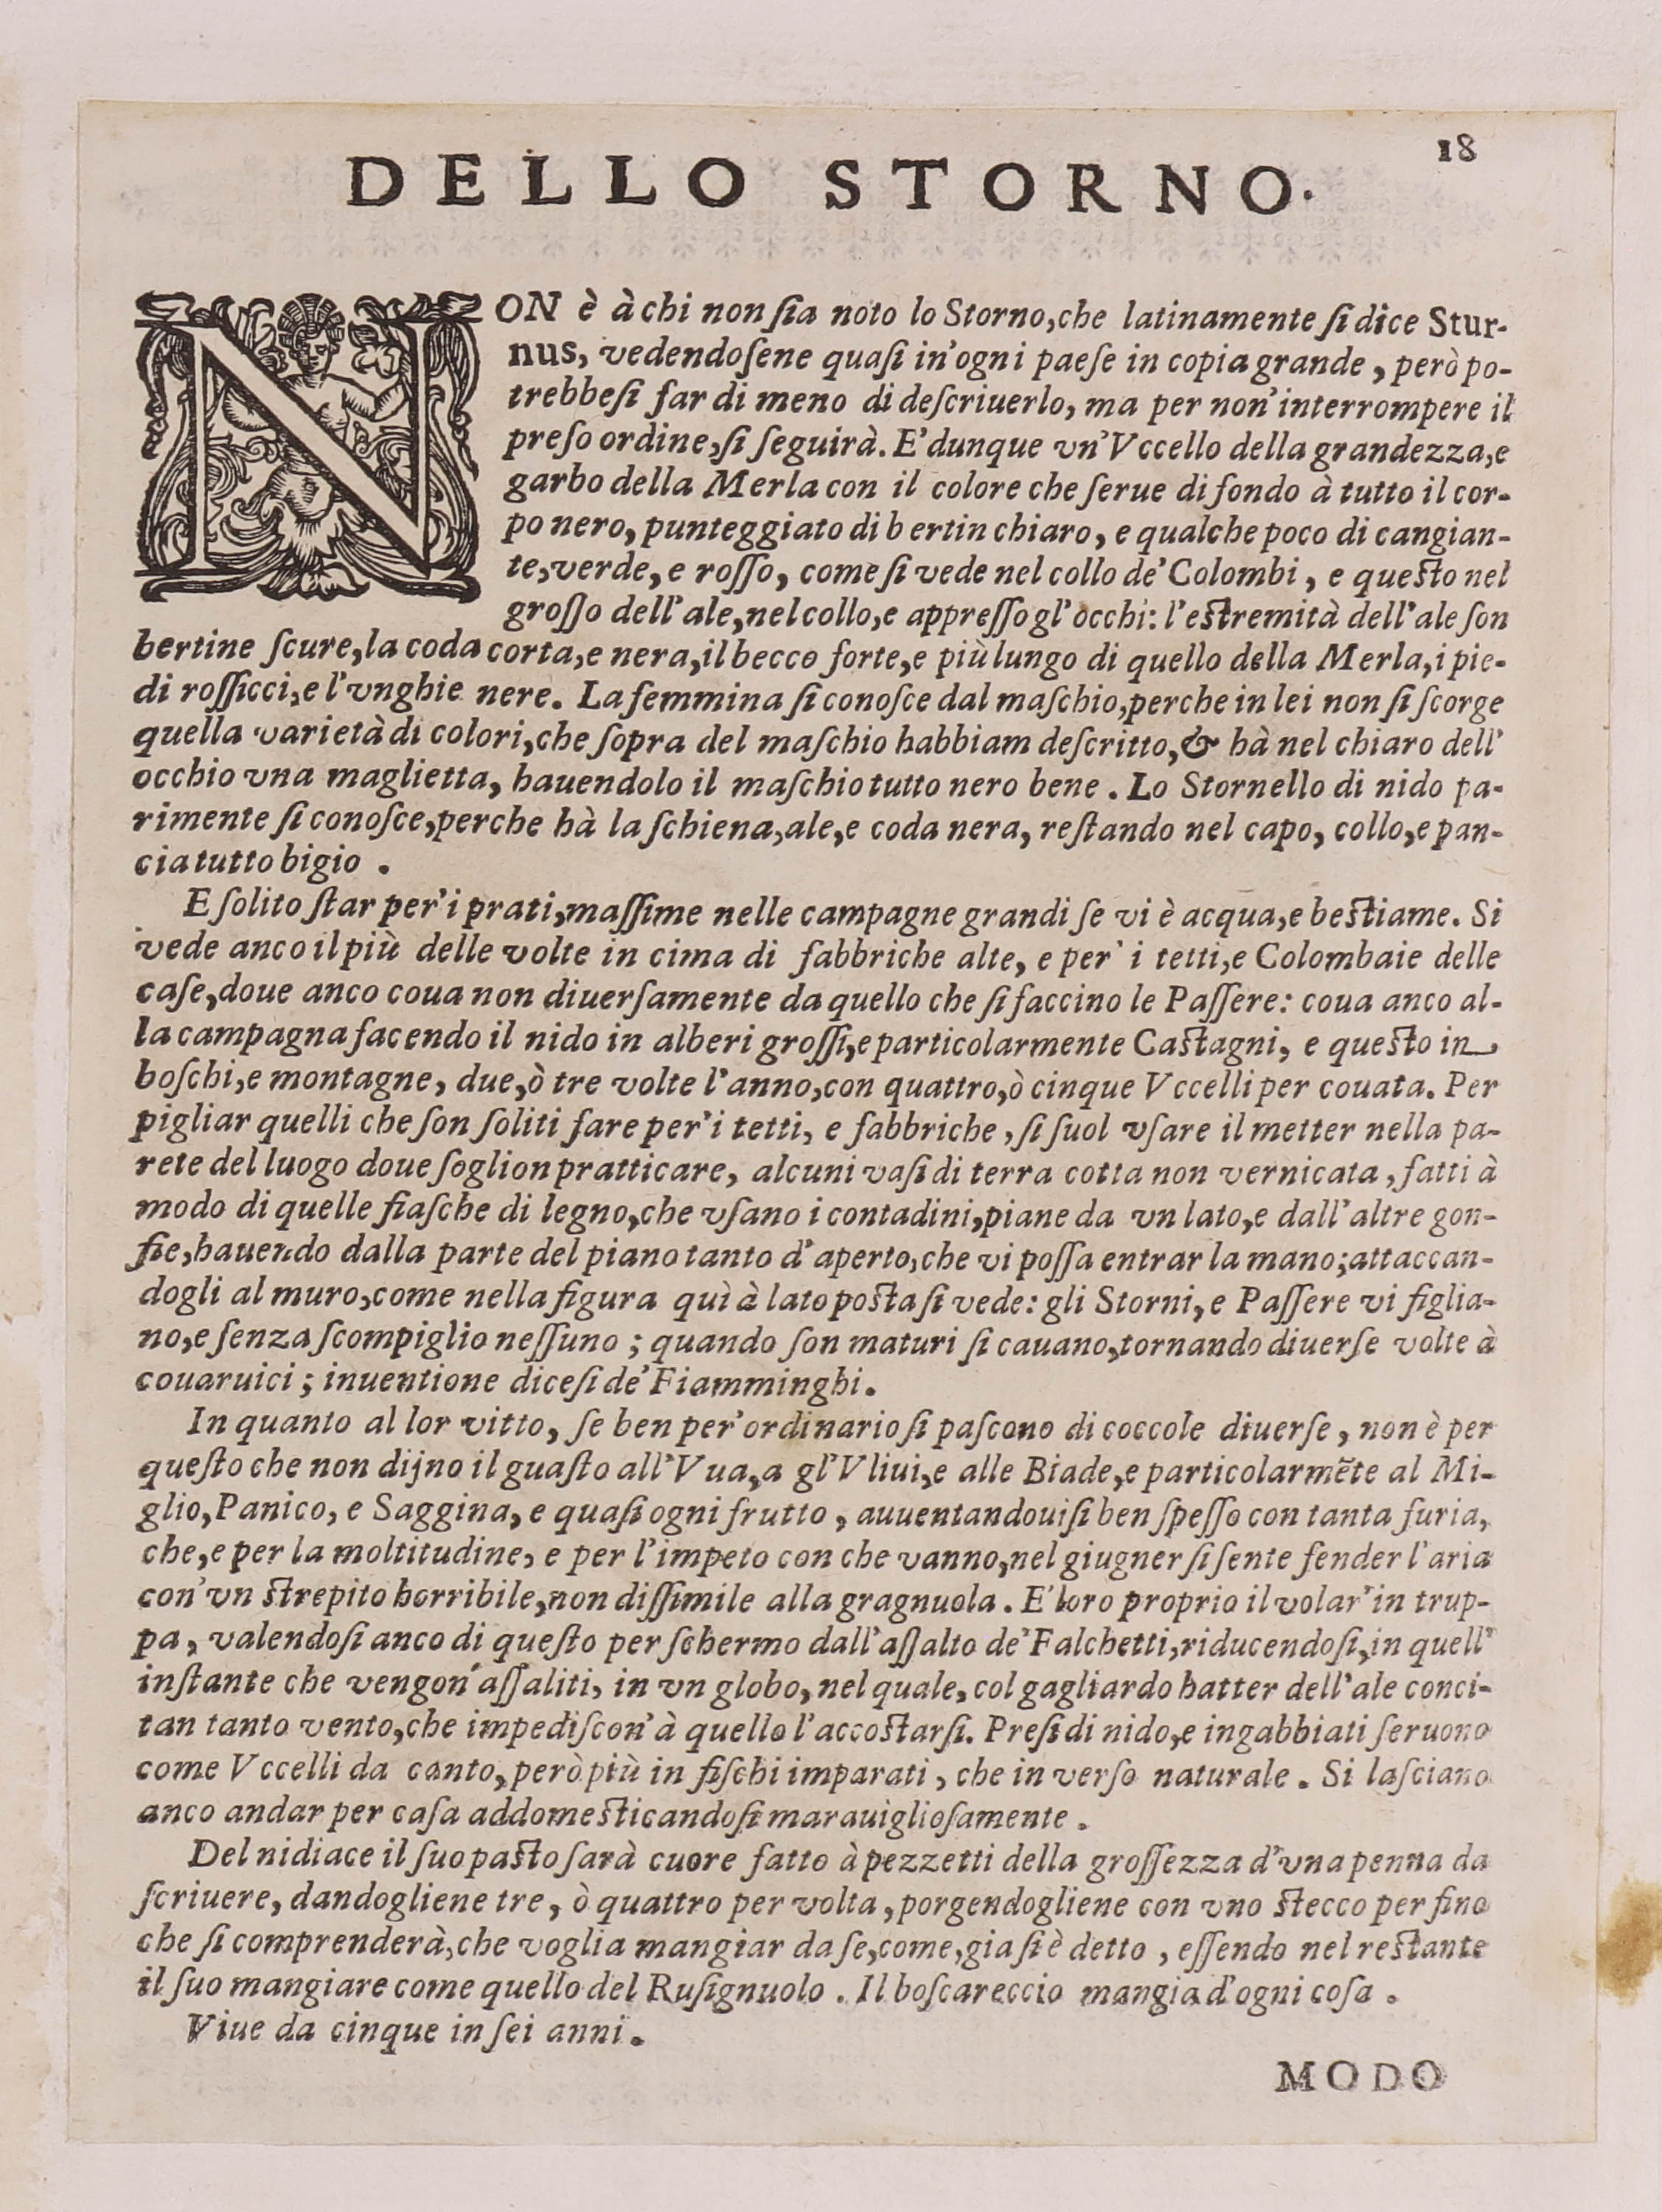 18
DELLO STORNO.
NON è à chi non ſia noto lo Storno, che latinamente ſi dice Stur-
nus, vedendoſene quaſi in'ogni paeſe in copia grande, però po-
trebbeſi far di meno di deſcriuerlo, ma per non'interrompere il
preſo ordine, ſi ſeguirà. E' dunque vn'Vccello della grandezza, e
garbo della Merla con il colore che ſerue di fondo à tutto il cor-
po nero, punteggiato di bertin chiaro, e qualche poco di cangian-
te, verde, e roſſo, come ſi vede nel collo de' Colombi, e queſto nel
groſſo dell'ale, nel collo, e appreſſo gl'occhi: l'eſtremità dell'ale ſon
bertine ſcure, la coda corta, e nera, il becco forte, e più lungo di quello della Merla, i pie-
di roſſicci, e l'vnghie nere. La femmina ſi conoſce dal maſchio, perche in lei non ſi ſcorge
quella varietà di colori, che ſopra del maſchio habbiam deſcritto, & hà nel chiaro dell'
occhio vna maglietta, hauendolo il maſchio tutto nero bene. Lo Stornello di nido pa-
rimente ſi conoſce, perche hà la ſchiena, ale, e coda nera, reſtando nel capo, collo, e pan-
cia tutto bigio.
E ſolito ſtar per'i prati, maſſime nelle campagne grandi ſe vi è acqua, e beſtiame. Si
vede anco il più delle volte in cima di fabbriche alte, e per' i tetti, e Colombaie delle
caſe, doue anco coua non diuerſamente da quello che ſi faccino le Paſſere: coua anco al-
la campagna facendo il nido in alberi groſſi, e particolarmente Caſtagni, e queſto in
boſchi, e montagne, due, ò tre volte l'anno, con quattro, ò cinque Vccelli per couata. Per
pigliar quelli che ſon ſoliti fare per'i tetti, e fabbriche, ſi ſuol vſare il metter nella pa-
rete del luogo doue ſoglion pratticare, alcuni vaſi di terra cotta non vernicata, fatti à
modo di quelle fiaſche di legno, che vſano i contadini, piane da vn lato, e dall'altre gon-
fie, hauendo dalla parte del piano tanto d'aperto, che vi poſſa entrar la mano; attaccan-
dogli al muro, come nella figura quì à lato poſta ſi vede: gli Storni, e Paſſere vi figlia-
no, e ſenza ſcompiglio neſſuno; quando ſon maturi ſi cauano, tornando diuerſe volte à
couaruici; inuentione diceſi de' Fiamminghi.
In quanto al lor vitto, ſe ben per'ordinario ſi paſcono di coccole diuerſe, non è per
queſto che non dijno il guaſto all'Vua, a gl'Vliui, e alle Biade, e particolarmẽte al Mi-
glio, Panico, e Saggina, e quaſi ogni frutto, auuentandouiſi ben ſpeſſo con tanta furia,
che, e per la moltitudine, e per l'impeto con che vanno, nel giugner ſi ſente fender l'aria
con'vn ſtrepito horribile, non diſſimile alla gragnuola. E' loro proprio il volar'in trup-
pa, valendoſi anco di queſto per ſchermo dall'aſſalto de' Falchetti, riducendoſi, in quell'
inſtante che vengon'aſſaliti, in vn globo, nel quale, col gagliardo batter dell'ale conci-
tan tanto vento, che impediſcon'à quello l'accoſtarſi. Preſi di nido, e ingabbiati ſeruono
come Vccelli da canto, però più in fiſchi imparati, che in verſo naturale. Si laſciano
anco andar per caſa addomeſticandoſi marauiglioſamente.
Del nidiace il ſuo paſto ſarà cuore fatto à pezzetti della groſſezza d'vna penna da
ſcriuere, dandogliene tre, ò quattro per volta, porgendogliene con vno ſtecco per fino
che ſi comprenderà, che voglia mangiar da ſe, come, gia ſi è detto, eſſendo nel reſtante
il ſuo mangiare come quello del Ruſignuolo. Il boſcareccio mangia d'ogni coſa.
Viue da cinque in ſei anni.
MODO